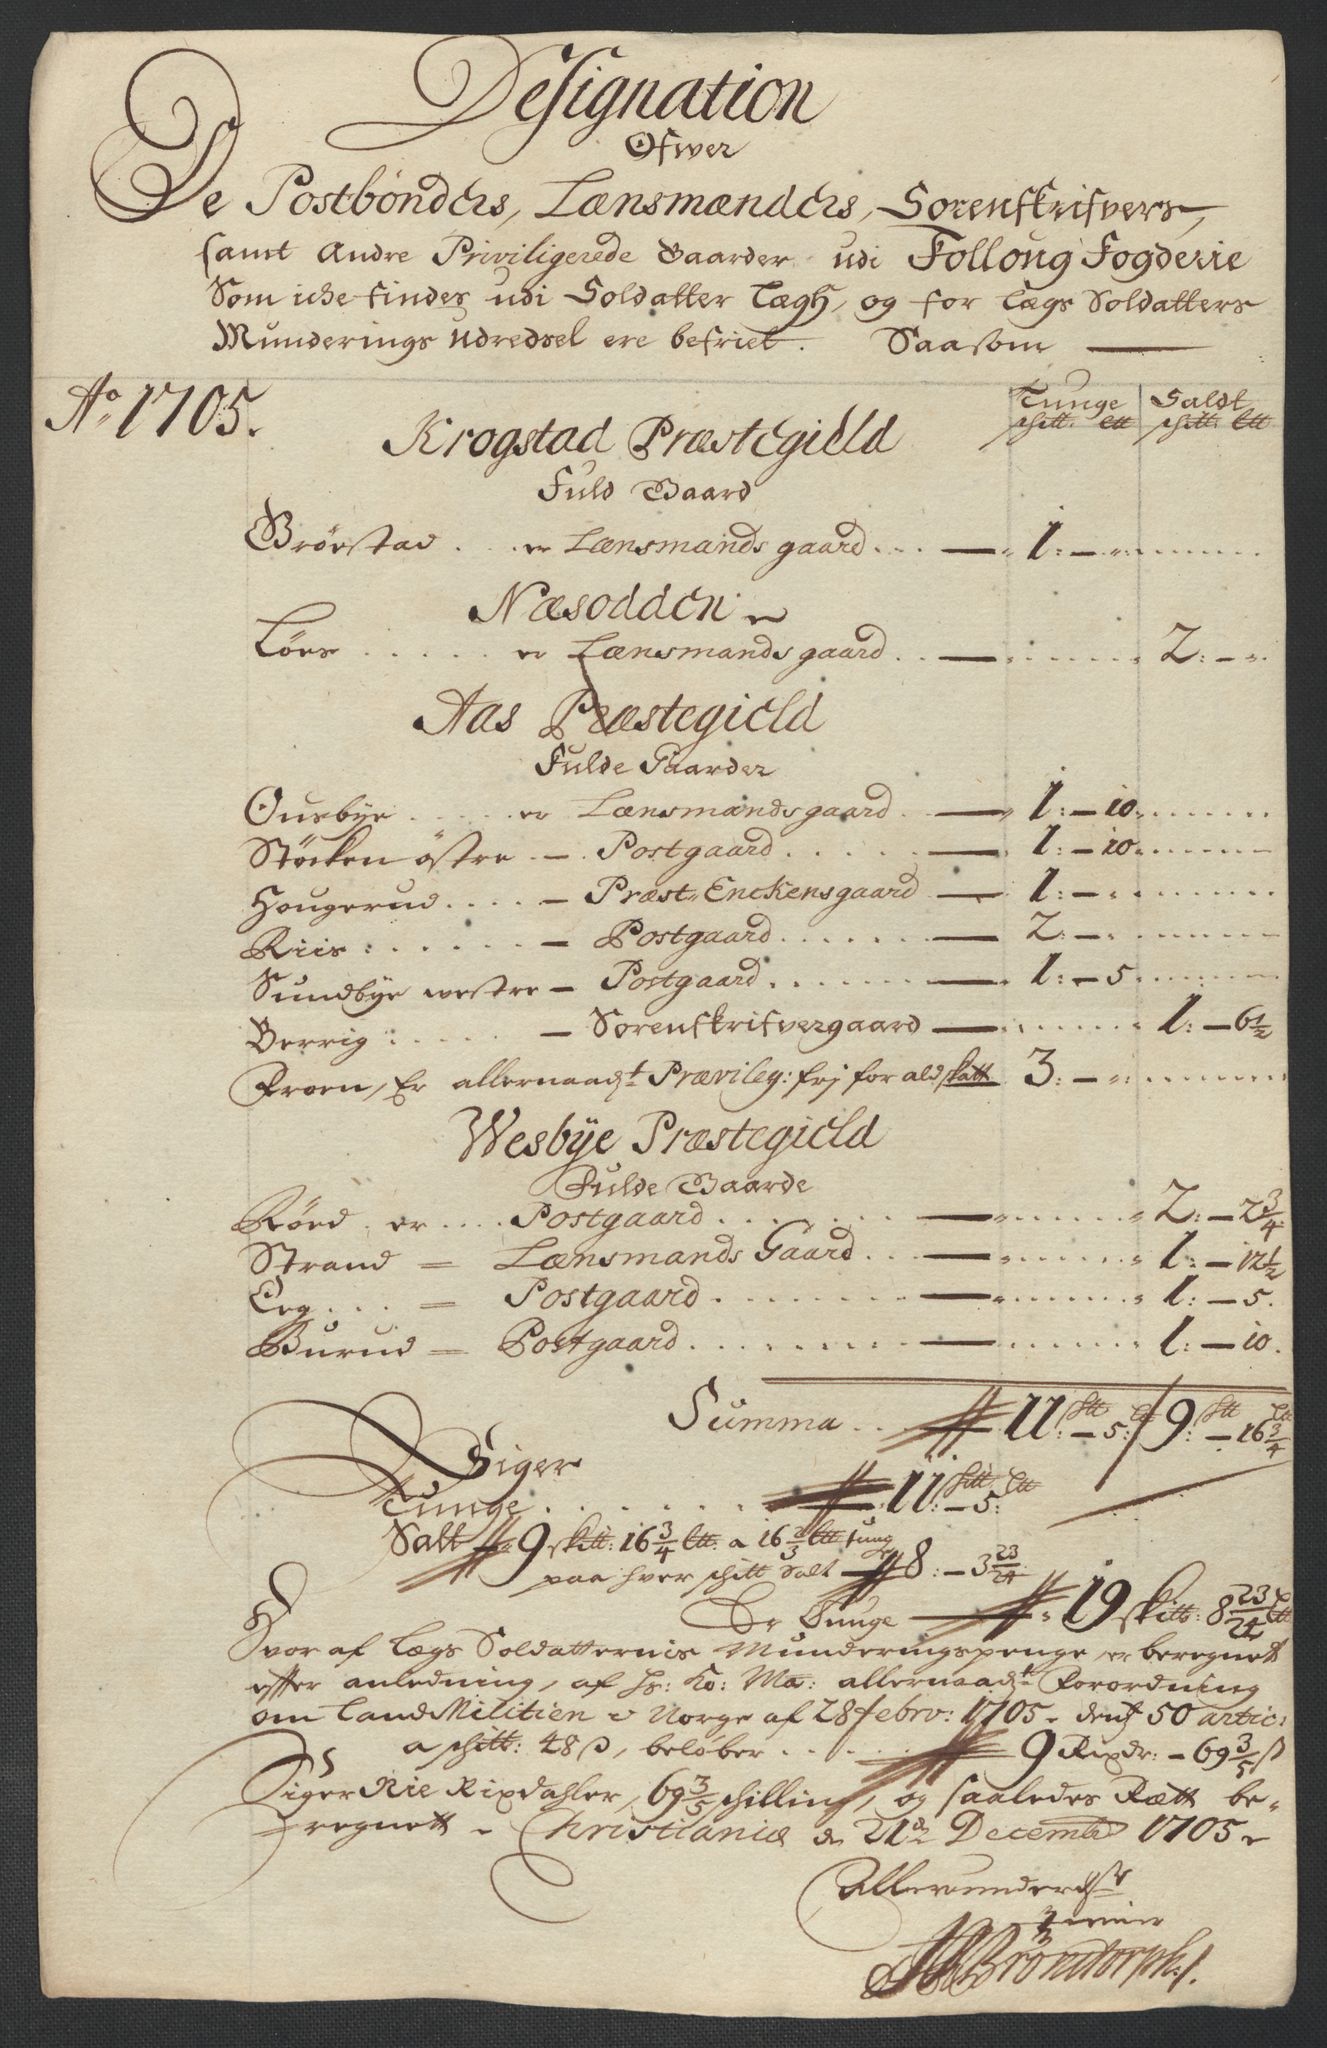 Designation
Ofwer
De Postbønders, Lænsmænders, Sorenskrifvers,
samt Andre Priviligerede Gaarder udi Follong Fogderie
Som iche findes udi Soldatter Lægh, og for Lægs Soldatters
Munderings Udredsel ere befriet. Saasom
Ao 1705.
Tunge Saldt
schltt: Ltt schltt: Ltt
Krogstad Præstegield
Fuld Gaard
Brøestad . . . er Lænsmands gaard . . . — 1: —
Næsodden
Løes . . . . . er Lænsmands gaard . . — 2: —
Aas Præstegield
Fulde Gaarder
Ousbye . . . . . er Lænsmandsgaard . — 1: — 10
Støcken östre — Postgaard . . . . . — 1: — 10
Hougerud . . . . — Præst Enckensgaard — 1: —
Riis : . . . . . — Postgaard . . . . . — 2: —
Sundbye westre — Postgaard . . . . . — 1: — 5
Berrig : . . . . — Sorenskrifvergaard — 1: — 6 1/2
Froen, Er allernaadt Prævileg: frj for ald skatt 3: —
Wesbye Præstegield
Fulde Gaarde
Røed . er . . . . Postgaard . . . . . — 2: — 2 3/4
Strand = Lænsmands Gaard . . — 1: — 12 1/2
Eeg . . . = Postgaard . . . . . — 1: — 5.
Burud = Postgaard . . . . . — 1: — 10.
Summa . . 11: — 5: / 9: — 16 3/4
Siger
Tunge . . . . . 11: — 5:
Salt 9 skltt: 16 3/4 Ltt: a 16 2/3 Ltt tung
paa hver schltt Salt — 8: — 3 23/24
Er Tunge — 19 skltt: 8 23/24 Ltt
Hvor af Lægs Soldatternis Munderingspenge er beregnet
efter anledning, af Hs: Ko: Ma: allernaadt Forordning
om Land Militien i Norge af 28 febrv: 1705. dend 50 artic:
a schltt: 48 ß, beløber . . . . 9 Rixdr: — 69 3/5 ß
Siger Nie Rixdahler, 69 3/5 schilling, og saaledes Rætt be-
regnett. Christiania d 21de Decembr 1705
Allerunderdst
tiener
Brøndorph